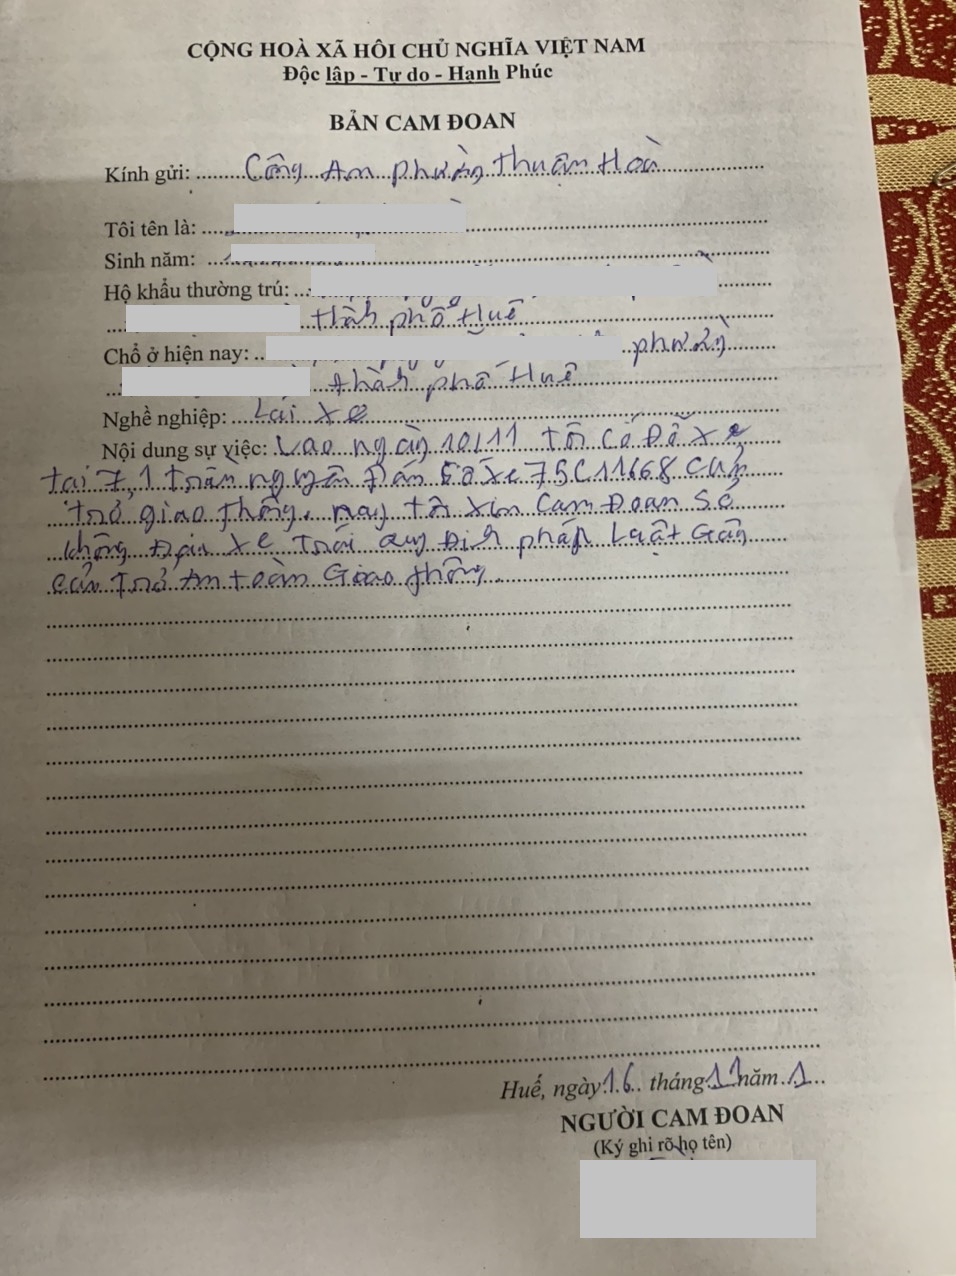 CỘNG HOÀ XÃ HÔI CHỦ NGHĨA VIỆT NAM
Độc lập - Tự do - Hạnh Phúc
BẢN CAM ĐOAN
Kính gửi: Công An phường Thuận Hoà
Tôi tên là:
Sinh năm:
Hộ khẩu thường trú:
thành phố Huế
Chổ ở hiện nay: phường
thành phố Huế
Nghề nghiệp: Lái xe
Nội dung sự việc: Vao ngày 10/11 tôi Có Đổ xe
tại 7,1 trần nguyên Đán Số xe 75C11668 Cản
trở giao thông. nay tôi xin Cam Đoan Sẻ
không Đậu xe Trái quy Định pháp Luật Gây
cản Trở An toàn Giao thông
Huế, ngày 16 tháng 11 năm 1
NGƯỜI CAM ĐOAN
(Ký ghi rõ họ tên)